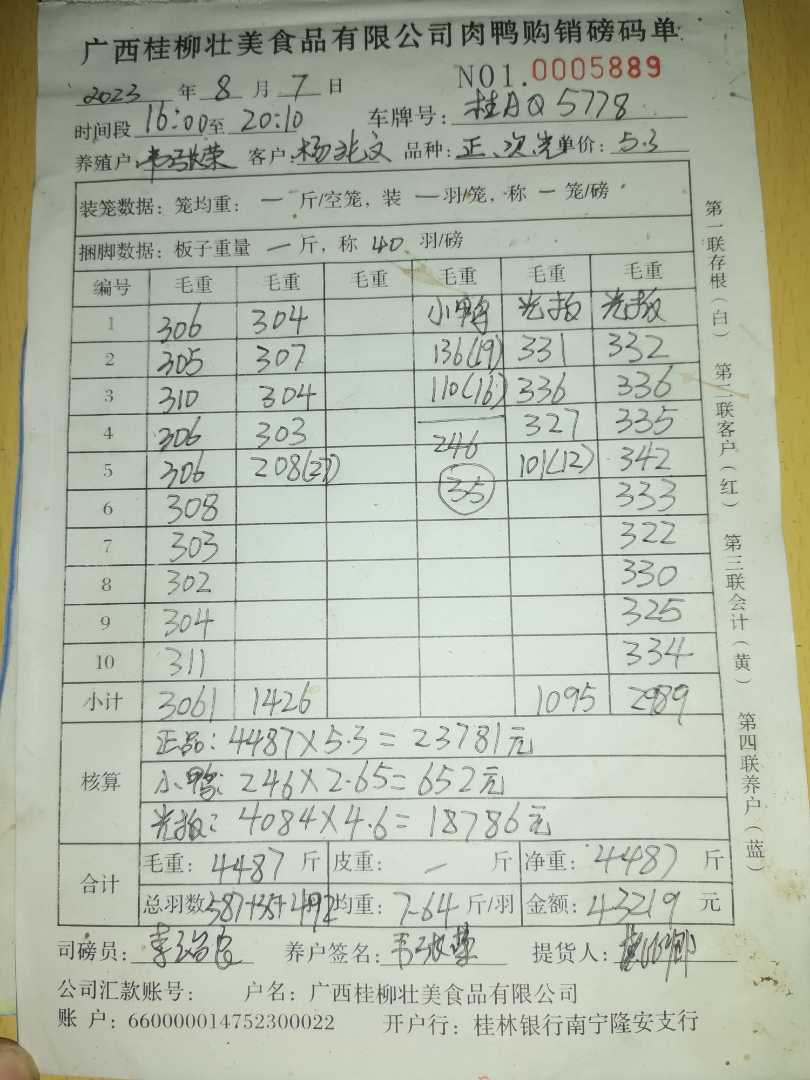 广西桂柳壮美食品有限公司肉鸭购销磅码单
2023 年 8 月 7 日 NO1.0005889
时间段 16:00至 20:10 车牌号: 桂AQ5778
养殖户: 荣 客户: 杨兆文 品种: 正、次、光 单价: 5.3
装笼数据: 笼均重: 一 斤/空笼, 装 一 羽/笼, 称 一 笼/磅
捆脚数据: 板子重量 一 斤, 称 40 羽/磅
编号 毛重 毛重 毛重 毛重 毛重 毛重
1 306 304 小鸭 光板 光板
2 305 307 136(19) 331 332
3 310 304 110(16) 336 336
4 306 303 246 327 335
5 306 208(27) 35 101(12) 342
6 308 333
7 303 322
8 302 330
9 304 325
10 311 334
小计 3061 1426 1095 2989
核算
正品: 4487×5.3=23781元
小鸭: 246×2.65=652元
光板: 4084×4.6=18786元
合计
毛重: 4487 斤 皮重: 一 斤 净重: 4487 斤
总羽数 587+35+492 均重: 7.64 斤/羽 金额: 43219 元
司磅员: 养户签名: 提货人:
公司汇款账号: 户名: 广西桂柳壮美食品有限公司
账 户: 660000014752300022 开户行: 桂林银行南宁隆安支行
第一联存根(白) 第二联客户(红) 第三联会计(黄) 第四联养户(蓝)